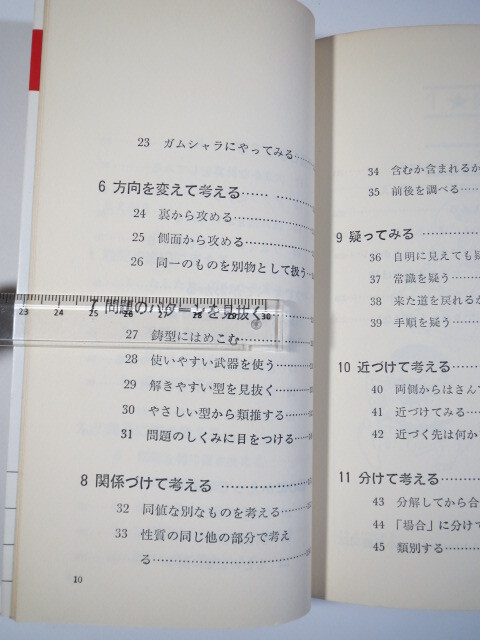 23 ガムシャラにやってみる……
6 方向を変えて考える…… ……
24 裏から攻める……………
25 側面から攻める…………
26 同一のものを別物として扱う
7 問題のパターンを見抜く
23 24 25 26 27 28 29 30
27 鋳型にはめこむ…………
28 使いやすい武器を使う……
29 解きやすい型を見抜く……
30 やさしい型から類推する…
31 問題のしくみに目をつける…
8 関係づけて考える ……………
32 同値な別なものを考える…
33 性質の同じ他の部分で考え
る……………………
10
34 含むか含まれるか
35 前後を調べる……
9 疑ってみる ……
36 自明に見えても疑
37 常識を疑う………
38 来た道を戻れるか
39 手順を疑う………
10 近づけて考える…
40 両側からはさんで
41 近づけてみる……
42 近づく先は何か
11 分けて考える……
43 分解してから合
44 「場合」に分けて
45 類別する…………